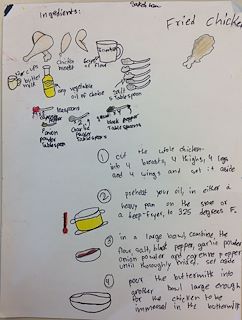 Ingredients:
Fried Chicken
butter
milk
chicken
breast
any vegetable
oil of choice
salt
Tablespoon
teaspoons
onion
powder
tablespoon
garlic
powder
black pepper
① cut the whole chicken
into 4 breasts, 4 thighs, 4 legs
and 4 wings and set it aside
② preheat your oil, in either a
heavy pan on the stove or
a deep-fryer, to 325 degrees F.
③ in a large bowl, combine the
flour, salt, black pepper, garlic powder
onion powder and cayenne pepper
until thoroughly mixed, set aside
④ pour the buttermilk into
another bowl large enough
for the chicken to be
immersed in the buttermilk